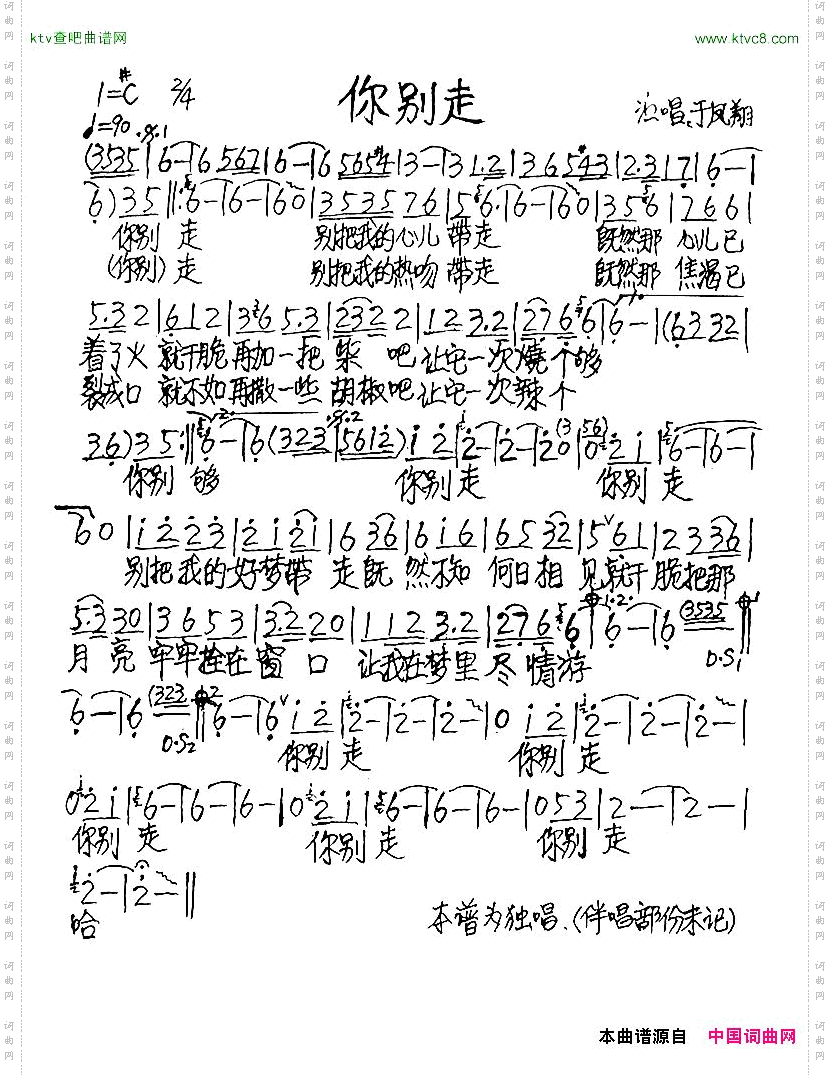 ktv查吧曲谱网 www.ktvc8.com
1=#C 2/4 你别走 演唱:于凤翔
♩=90 .𝄋.1
(3535|6—|6 567|6—|6 5654|3—|31.2|36 5#43|2.31 7|6—|
6) 35|:6—|6—|60|3535 76|56.|6—|60|35 6|766|
你别 走 别把我的心儿 带走 既然那 心儿已
(你别) 走 别把我的热吻 带走 既然那 焦渴已
5.32|612|36 5.3|232 2|12 3.2|276 6|6—|(63 32|
着了火 就干脆再加一把 柴 吧 让它一次燒 个够
裂成口 就不如再撒一些 胡椒吧 让它一次辣 个
36) 35:|6—|6(323|5612) i2|2—|2—|20(3|56)02i|6—|6—|
你别 够 你别走 你别 走
60|i2 23|2i 2i|6 36|6i6|65 32|561|2 3 36|
别把 我的好梦带 走既 然不知 何日相 见就干 脆把那
5.3 30|36 53|3.2 20|112 3.2|276 6|6—|6 (3535||
月 亮 牢牢拴在窗 口 让我在梦里 尽 情游
D.S1
6—|6 (323||6—|6 i2|2—|2—|2—|0 i2|2—|2—|2—|
D.S2
你别 走 你别 走
02i|6—|6—|6—|02i|6—|6—|6—|053|2—|2—|
你别 走 你别 走 你别 走
2—|2—||
哈
本谱为独唱.(伴唱部份未记)
本曲谱源自 中国词曲网